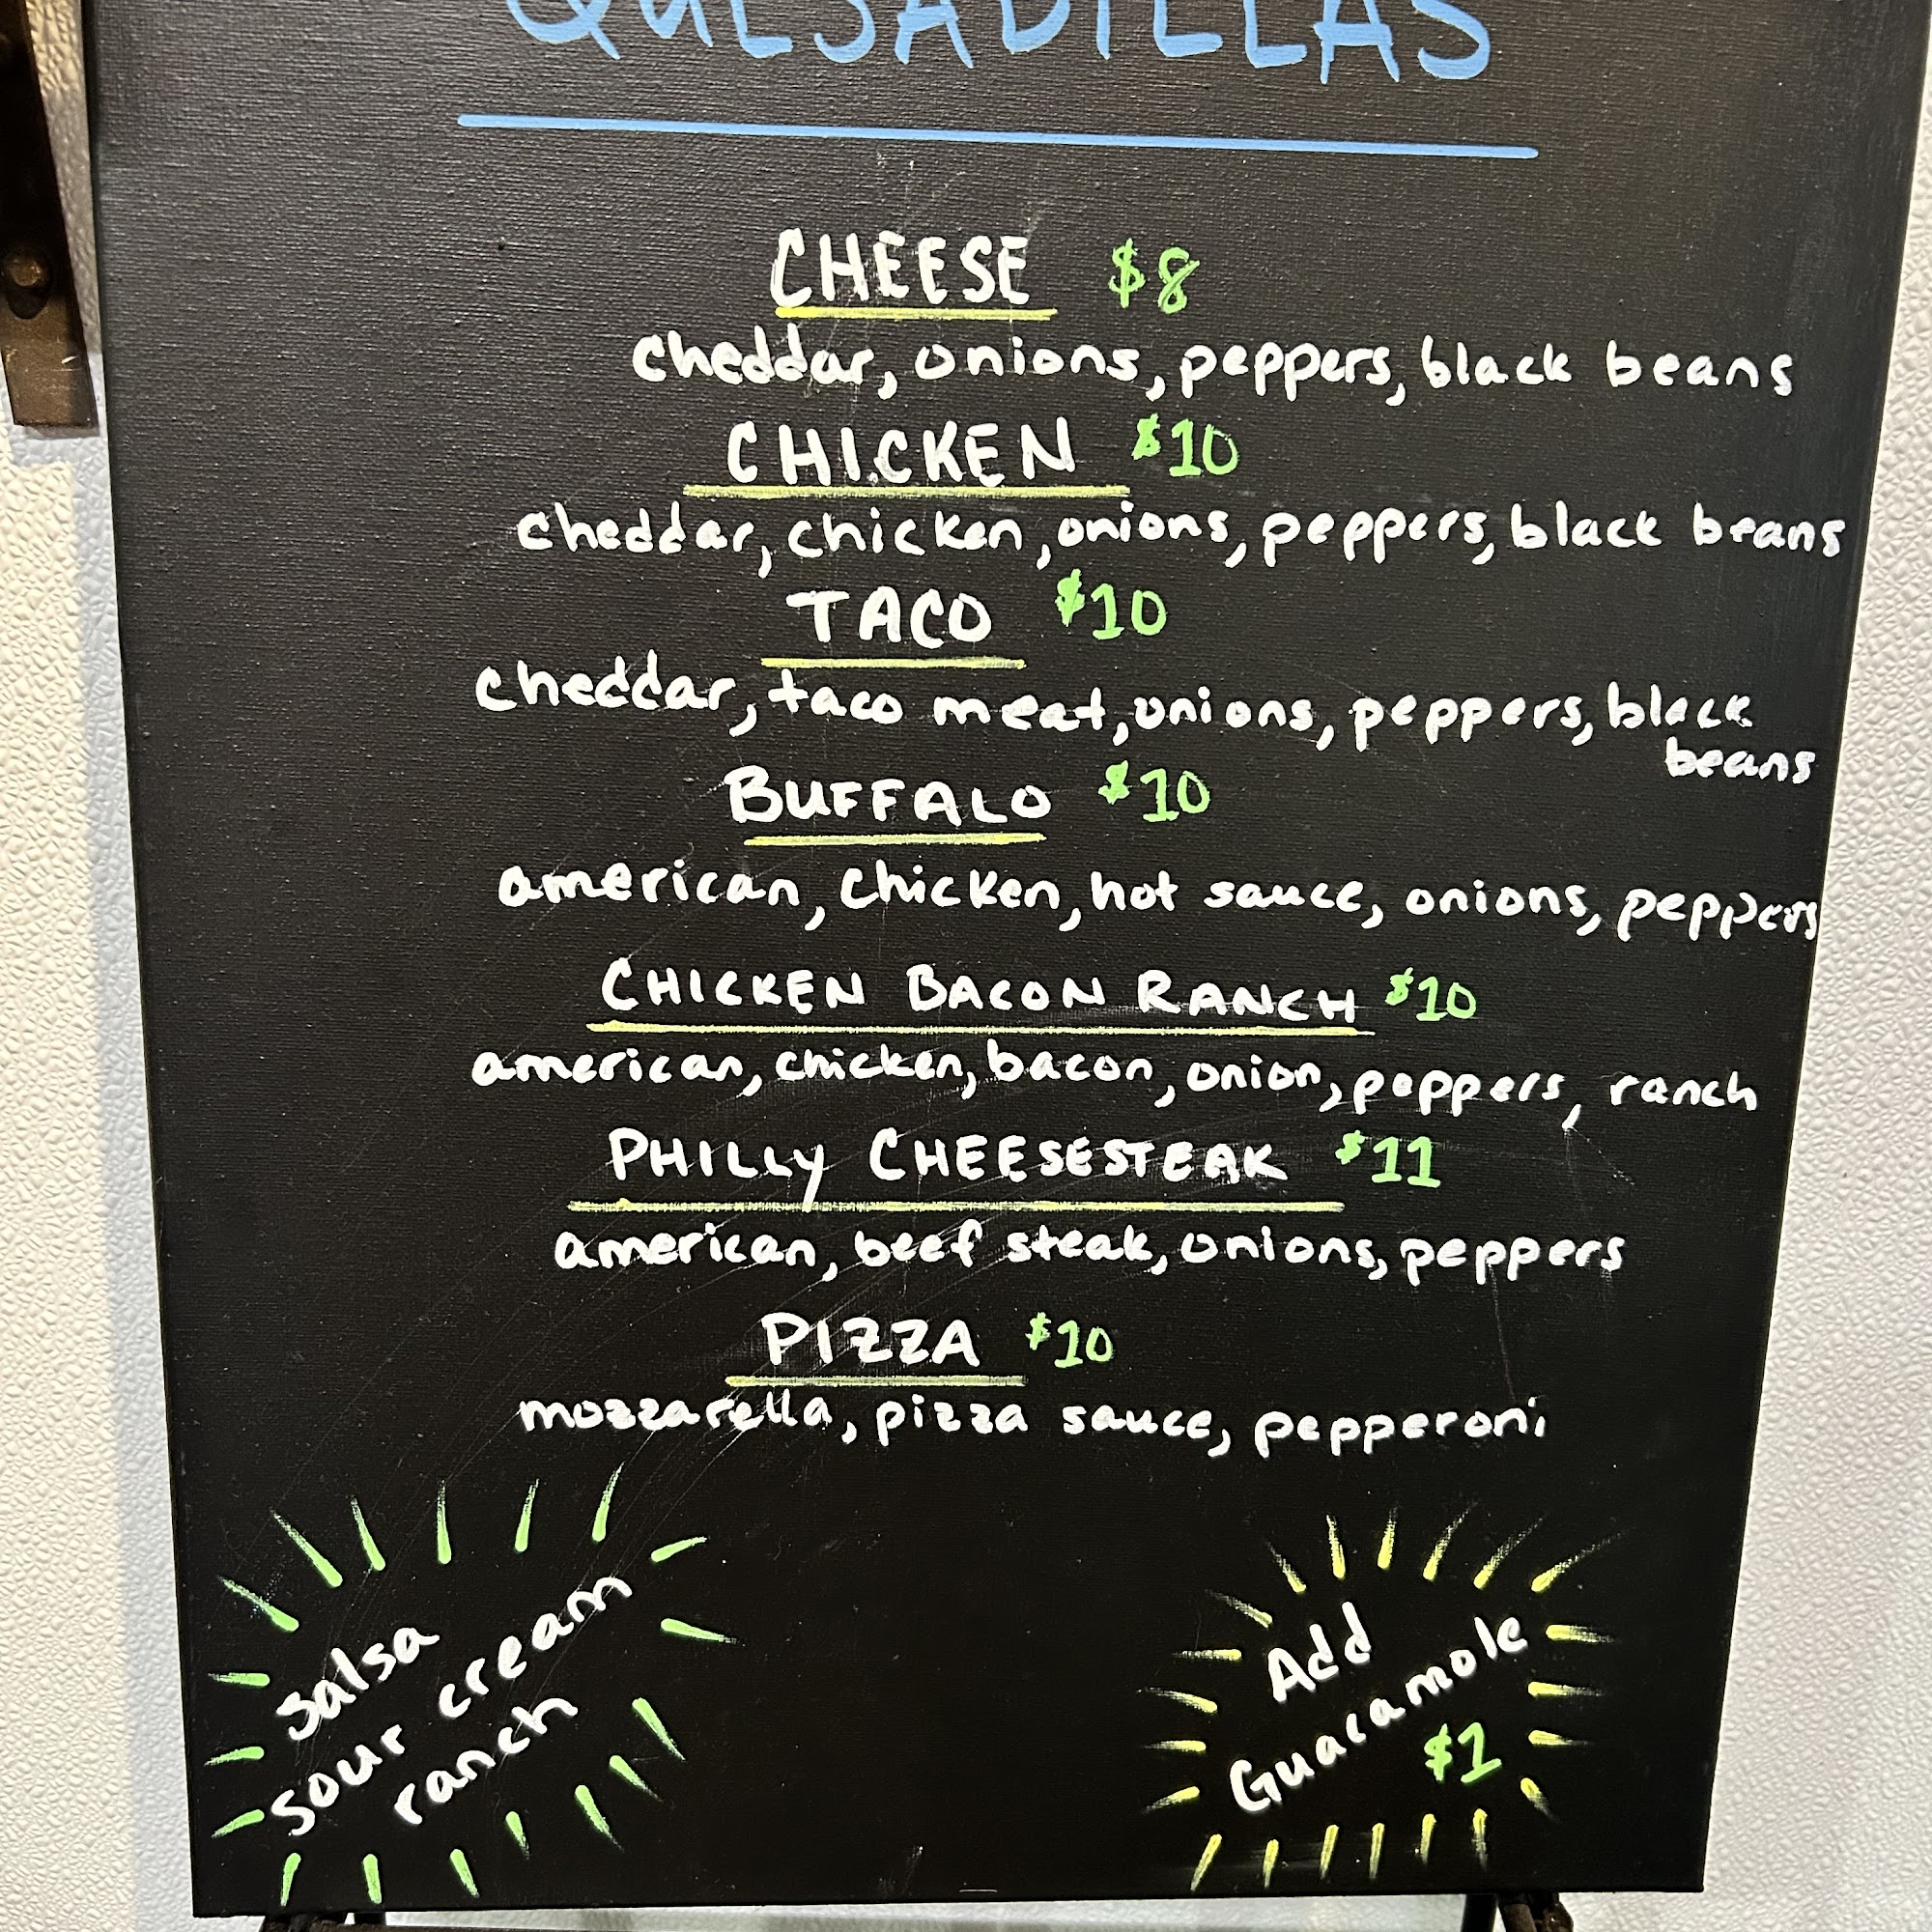 QUESADILLAS
CHEESE $8
cheddar, onions, peppers, black beans
CHICKEN $10
cheddar, chicken, onions, peppers, black beans
TACO $10
cheddar, taco meat, onions, peppers, black
beans
BUFFALO $10
american, chicken, hot sauce, onions, peppers
CHICKEN BACON RANCH $10
american, chicken, bacon, onion, peppers, ranch
PHILLY CHEESESTEAK $11
american, beef steak, onions, peppers
PIZZA $10
mozzarella, pizza sauce, pepperoni
salsa
sour cream
ranch
Add
Guacamole
$1